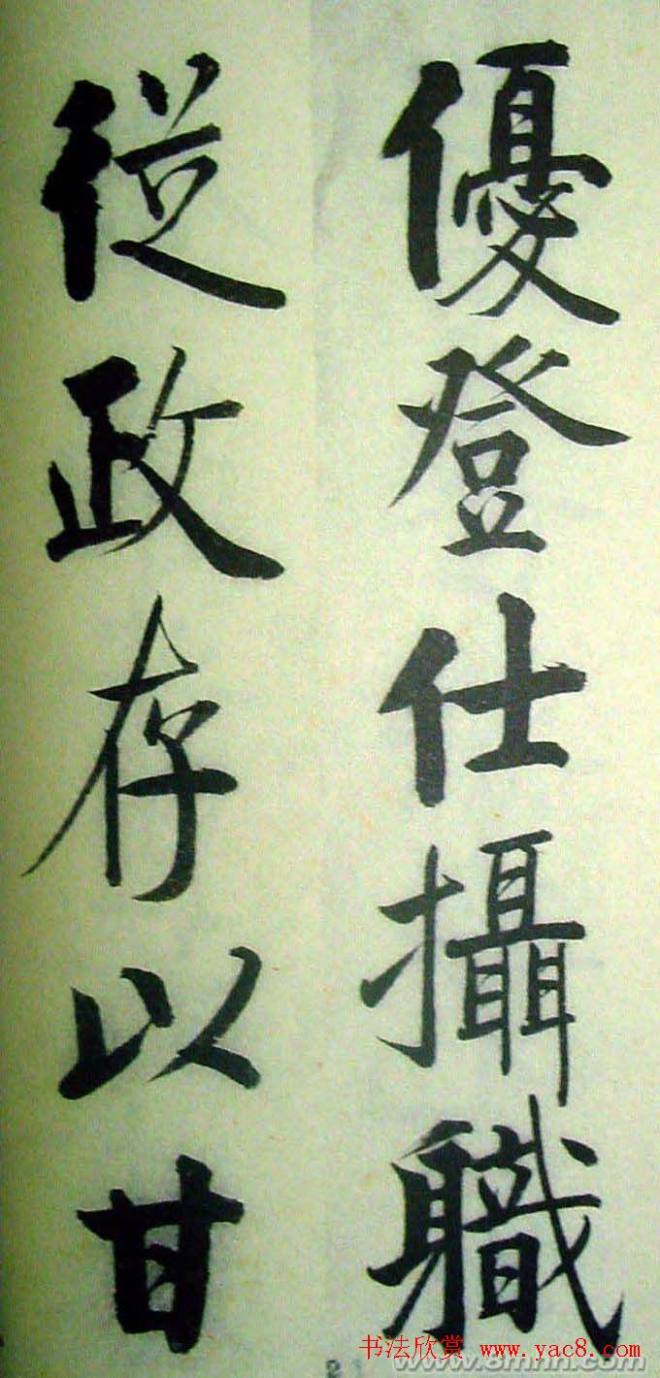 優登仕攝職
從政存以甘
书法欣赏 www.yac8.com